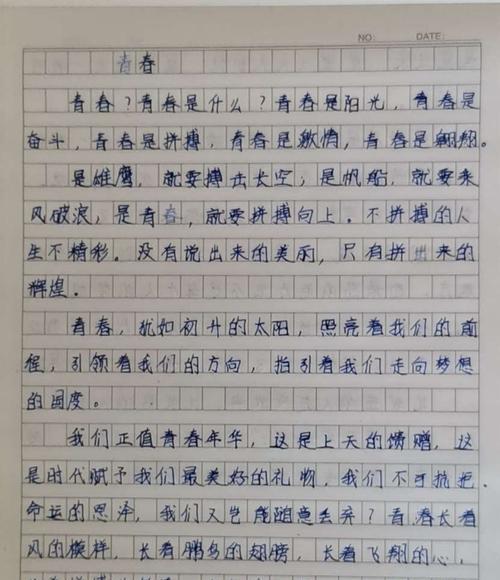 NO: DATE:
青春
青春?青春是什么?青春是阳光,青春是
奋斗,青春是拼搏,青春是激情,青春是翱翔。
是雄鹰,就要搏击长空;是帆船,就要乘
风破浪,是青春,就要拼搏向上。不拼搏的人
生不精彩。没有说出来的美丽,只有拼出来的
辉煌。
青春,犹如初升的太阳,照亮着我们的前
程,引领着我们的方向,指引着我们走向梦想
的国度。
我们正值青春年华,这是上天的馈赠,这
是时代赋予我们最美好的礼物,我们不可抗拒。
命运的恩泽,我们又岂能随意丢弃?青春长着
风的模样,长着鹏鸟的翅膀,长着飞翔的心,